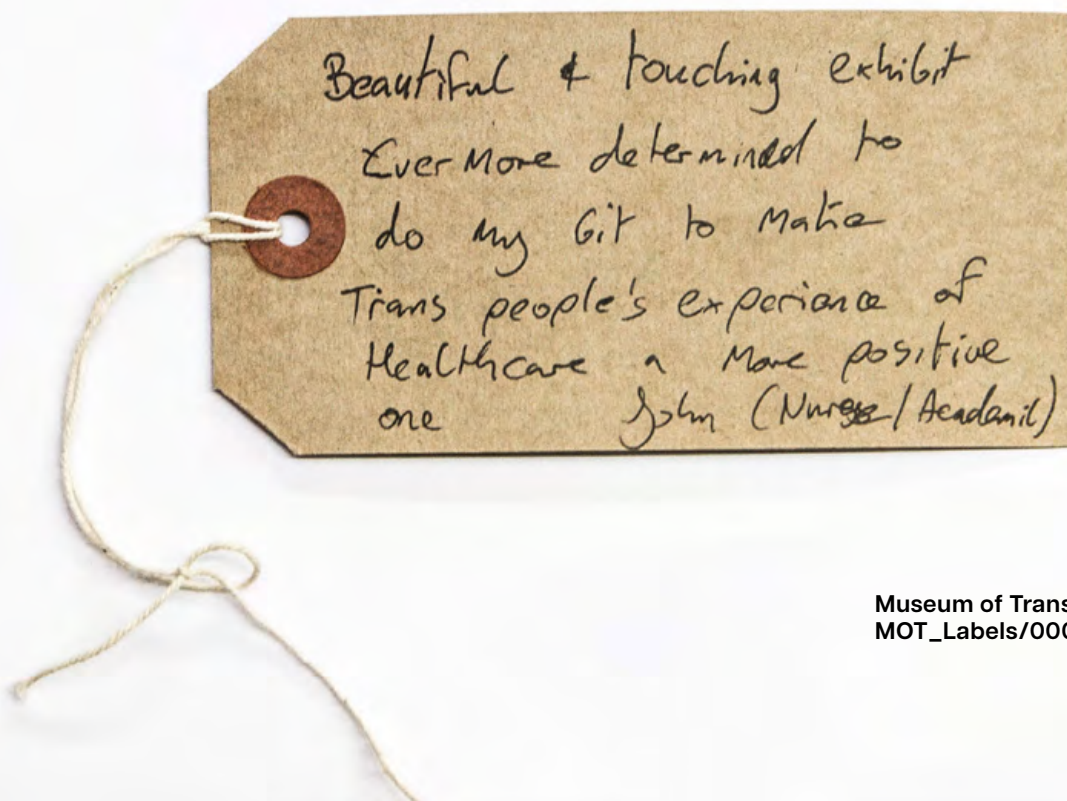 Beautiful & touching exhibit
Ever More determined to
do my bit to make
Trans people's experience of
Healthcare a More positive
one John (Nurse/Academic)
Museum of Trans
MOT_Labels/000